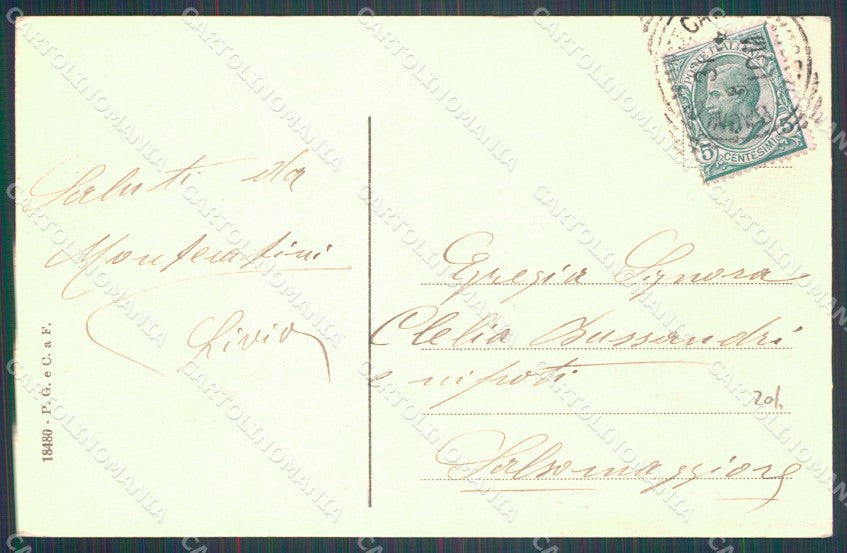 Saluti da
Montecatini
Livio
18480 - P. G. e C. a F.
POSTE ITALIANE
5 CENTESIMI 5
Egregia Signora
Clelia Bussandri
e nipoti
Salsomaggiore
CARTOLINOMANIA